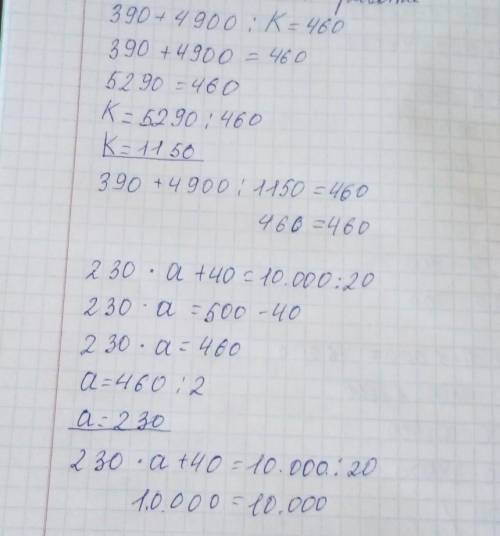 390 + 4900 : K = 460
390 + 4900 = 460
5290 = 460
K = 5290 : 460
K = 1150
390 + 4900 : 1150 = 460
460 = 460
230 · a + 40 = 10.000 : 20
230 · a = 500 - 40
230 · a = 460
a = 460 : 2
a = 230
230 · a + 40 = 10.000 : 20
10.000 = 10.000